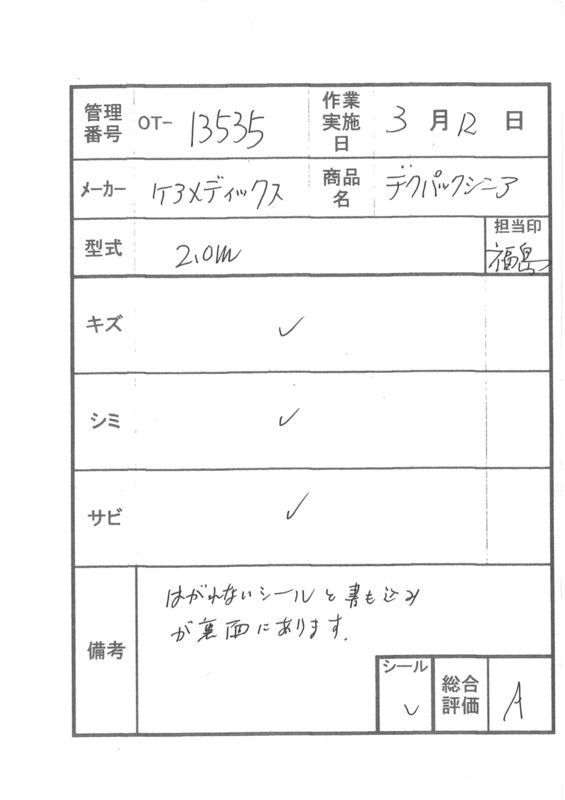 管理番号 OT- 13535 作業実施日 3月12日
メーカー ケアメディックス 商品名 デクパックシニア
型式 2.0m 担当印 福島
キズ ✓
シミ ✓
サビ ✓
備考 はがれないシール と 書き込み
が 裏面にあります.
シール ✓ 総合評価 A